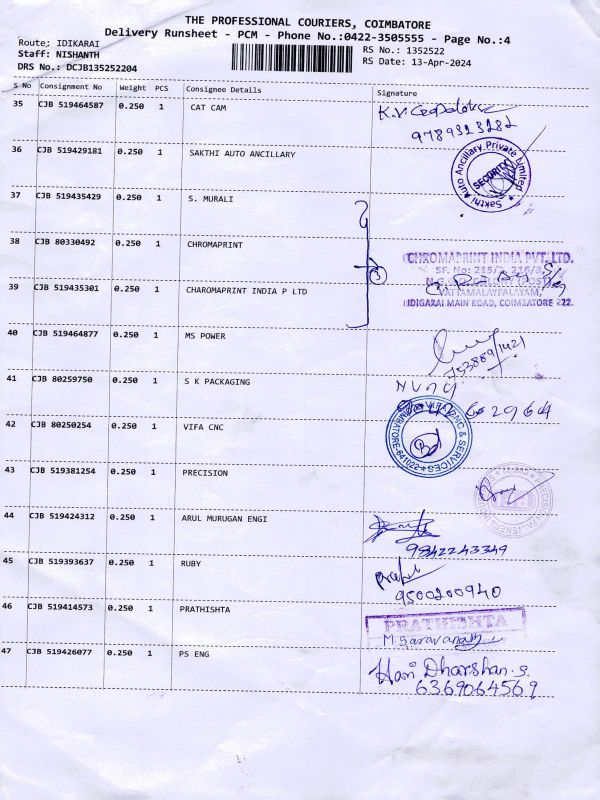 THE PROFESSIONAL COURIERS, COIMBATORE
Delivery Runsheet - PCM - Phone No.:0422-3505555 - Page No.:4
Route: IDIKARAI
Staff: NISHANTH
DRS No.: DCJB135252204
RS No.: 1352522
RS Date: 13-Apr-2024
S No Consignment No Weight PCS Consignee Details Signature
35 CJB 519464587 0.250 1 CAT CAM
9789323282
36 CJB 519429181 0.250 1 SAKTHI AUTO ANCILLARY
Sakthi Auto Ancillary Private Limited
SECURITY
37 CJB 519435429 0.250 1 S. MURALI
38 CJB 80330492 0.250 1 CHROMAPRINT
3
CHROMAPRINT INDIA PVT. LTD.
SF. No: 215/2, 216/3,
39 CJB 519435301 0.250 1 CHAROMAPRINT INDIA P LTD
VATTAMALAYPALAYAM,
IDIGARAI MAIN ROAD, COIMBATORE 022.
40 CJB 519464877 0.250 1 MS POWER
41 CJB 80259750 0.250 1 S K PACKAGING
42 CJB 80250254 0.250 1 VIFA CNC
VIFA CNC & SERVICES
COIMBATORE-641022
43 CJB 519381254 0.250 1 PRECISION
44 CJB 519424312 0.250 1 ARUL MURUGAN ENGI
9942243349
45 CJB 519393637 0.250 1 RUBY
9500200940
46 CJB 519414573 0.250 1 PRATHISHTA
PRATHISHTA
M. Saravanan
47 CJB 519426077 0.250 1 PS ENG
Hari Dharshan.S.
6369064569